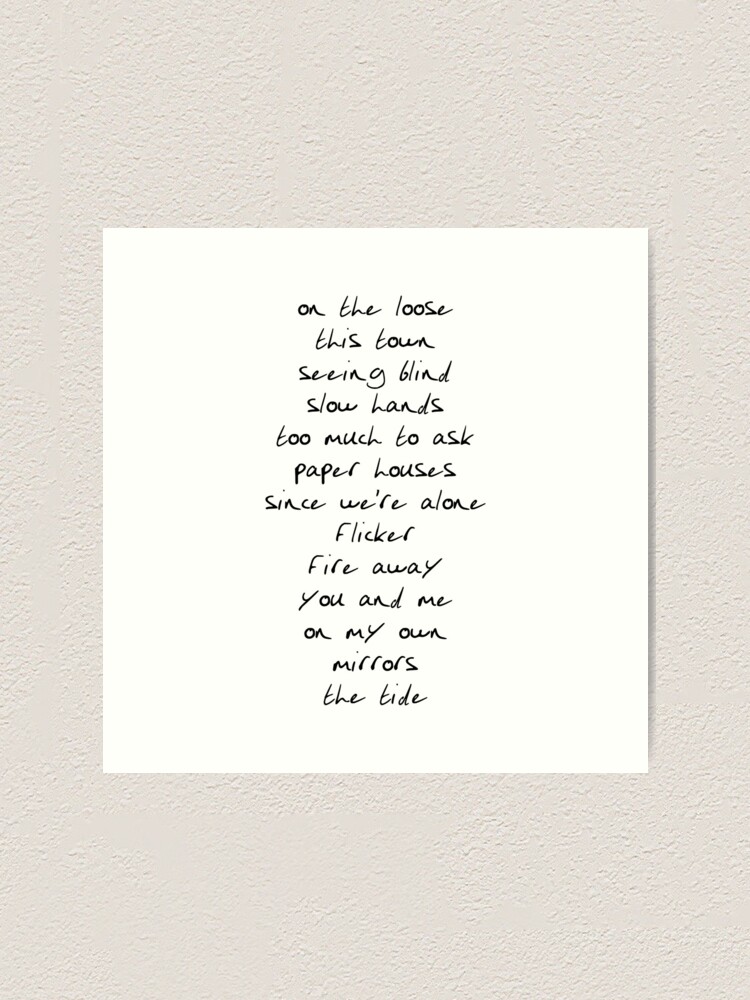 on the loose
this town
seeing blind
slow hands
too much to ask
paper houses
since we're alone
Flicker
Fire away
you and me
on my own
mirrors
the tide